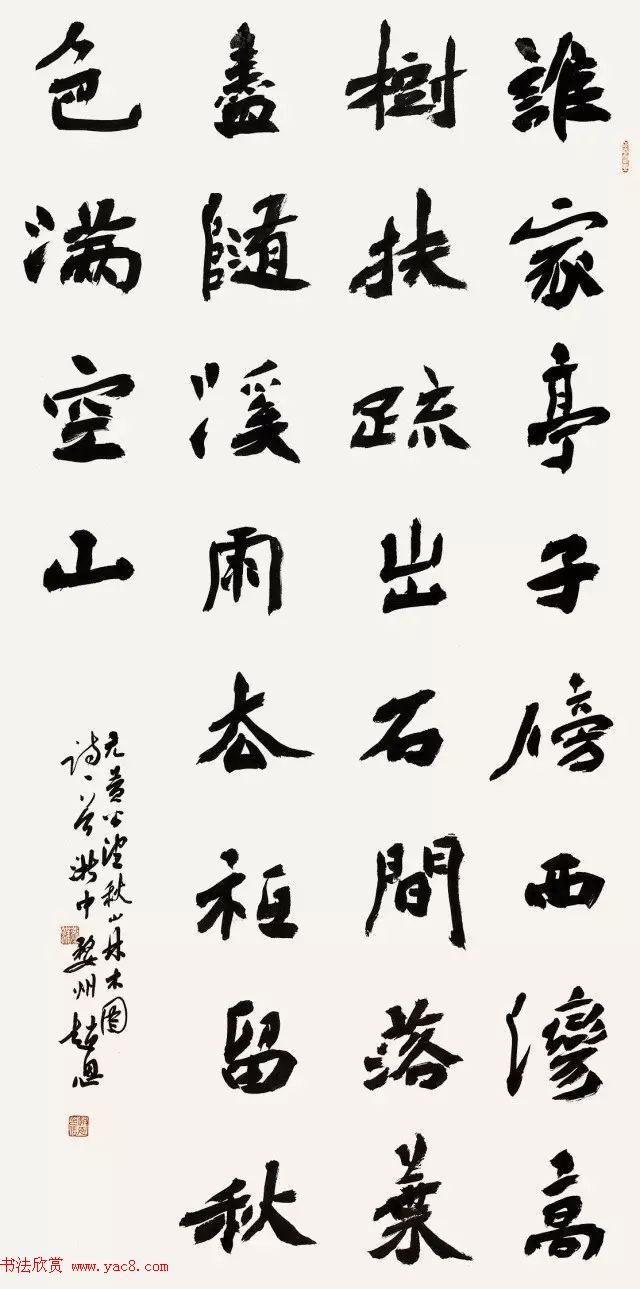 誰家亭子傍西灣高
樹扶疏出石間落葉
盡隨溪雨去祗留秋
色满空山
元黄公望秋山林木圖
詩一首浙中婺州趙恩
书法欣赏 www.yac8.com